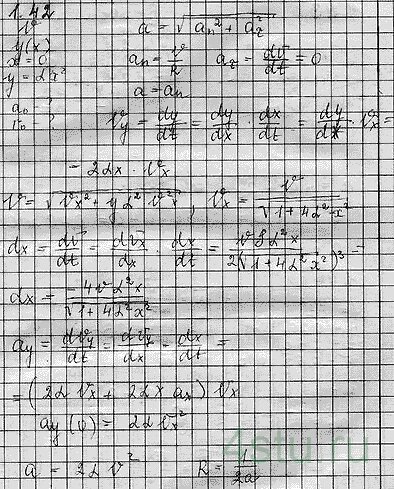 1.42
v
y(x)
x = 0
y = αx²
aₙ - ?
rₙ - ?
a = √(aₙ² + a_τ²)
aₙ = v/R   a_τ = dv/dt = 0
a = aₙ
v_y = dy/dt = dy/dx · dx/dt = dy/dx · vₓ =
= 2αx · vₓ
v = √(vₓ² + 4α² vₓ²x) , vₓ = v/√(1 + 4α²x²)
dx = dv/dt = dvₓ/dx · dx/dt = v8α²x/2(√(1 + 4α²x²))³ =
dx = -4vα²x/√(1 + 4α²x²)
a_y = dv_y/dt = dv_y/dx · dx/dt =
= (2αvₓ + 2αx aₓ) vₓ
a_y(0) = 2αvₓ²
a = 2αv²   R = 1/2a
4stu.ru